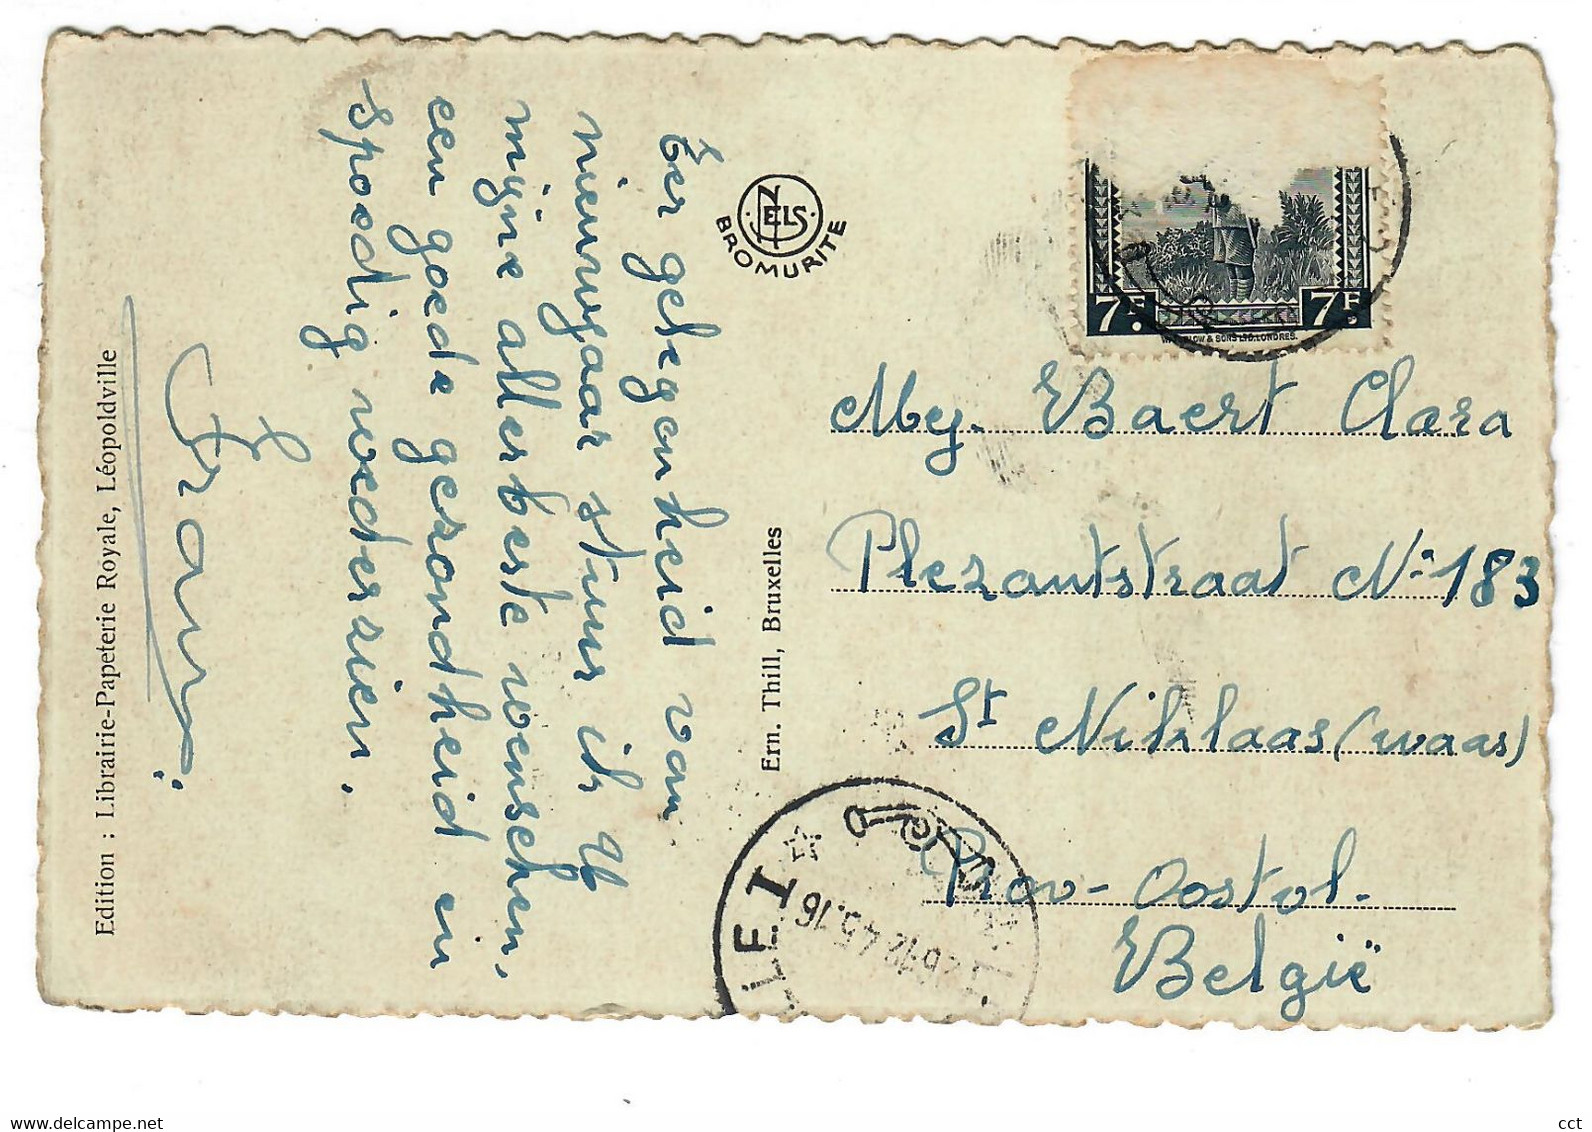 Ter gelegenheid van
nieuwjaar stuur ik U
mijne allerbeste wenschen,
een goede gezondheid en
spoedig wederzien.
Frans.
Edition : Librairie-Papeterie Royale, Léopoldville
NELS
BROMURITE
Ern. Thill, Bruxelles
7F. 7F.
WATERLOW & SONS LTD. LONDRES.
Mej. Baert Clara
Plezantstraat No 183
St Niklaas (waas)
Prov- Oostvl.
België
26-12 45.16
cct